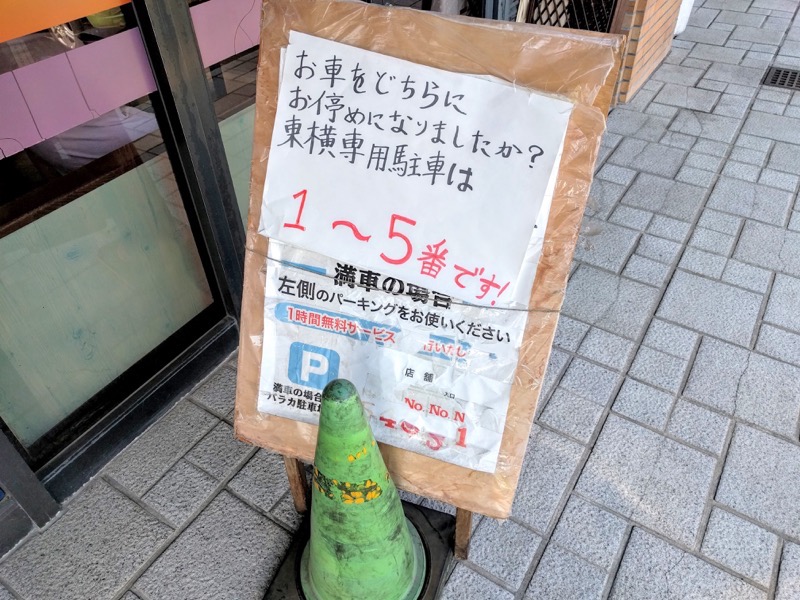 お車をどちらに
お停めになりましたか?
東横専用駐車は
1～5番です!
満車の場合
左側のパーキングをお使いください
1時間無料サービス 行いたし
P
店舗
満車の場合
パラカ駐車場
入口
No. No. N